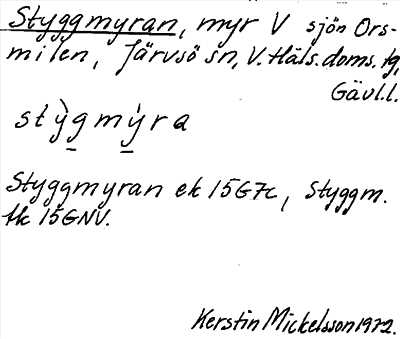 Styggmyran, myr V sjön Ors-
milen, Järvsö sn, V. Häls. doms. tg,
Gävl.l.
stỳgmỳra
Styggmyran ek 15G7c, Styggm.
tk 15GNV.
Kerstin Mickelsson 1972.